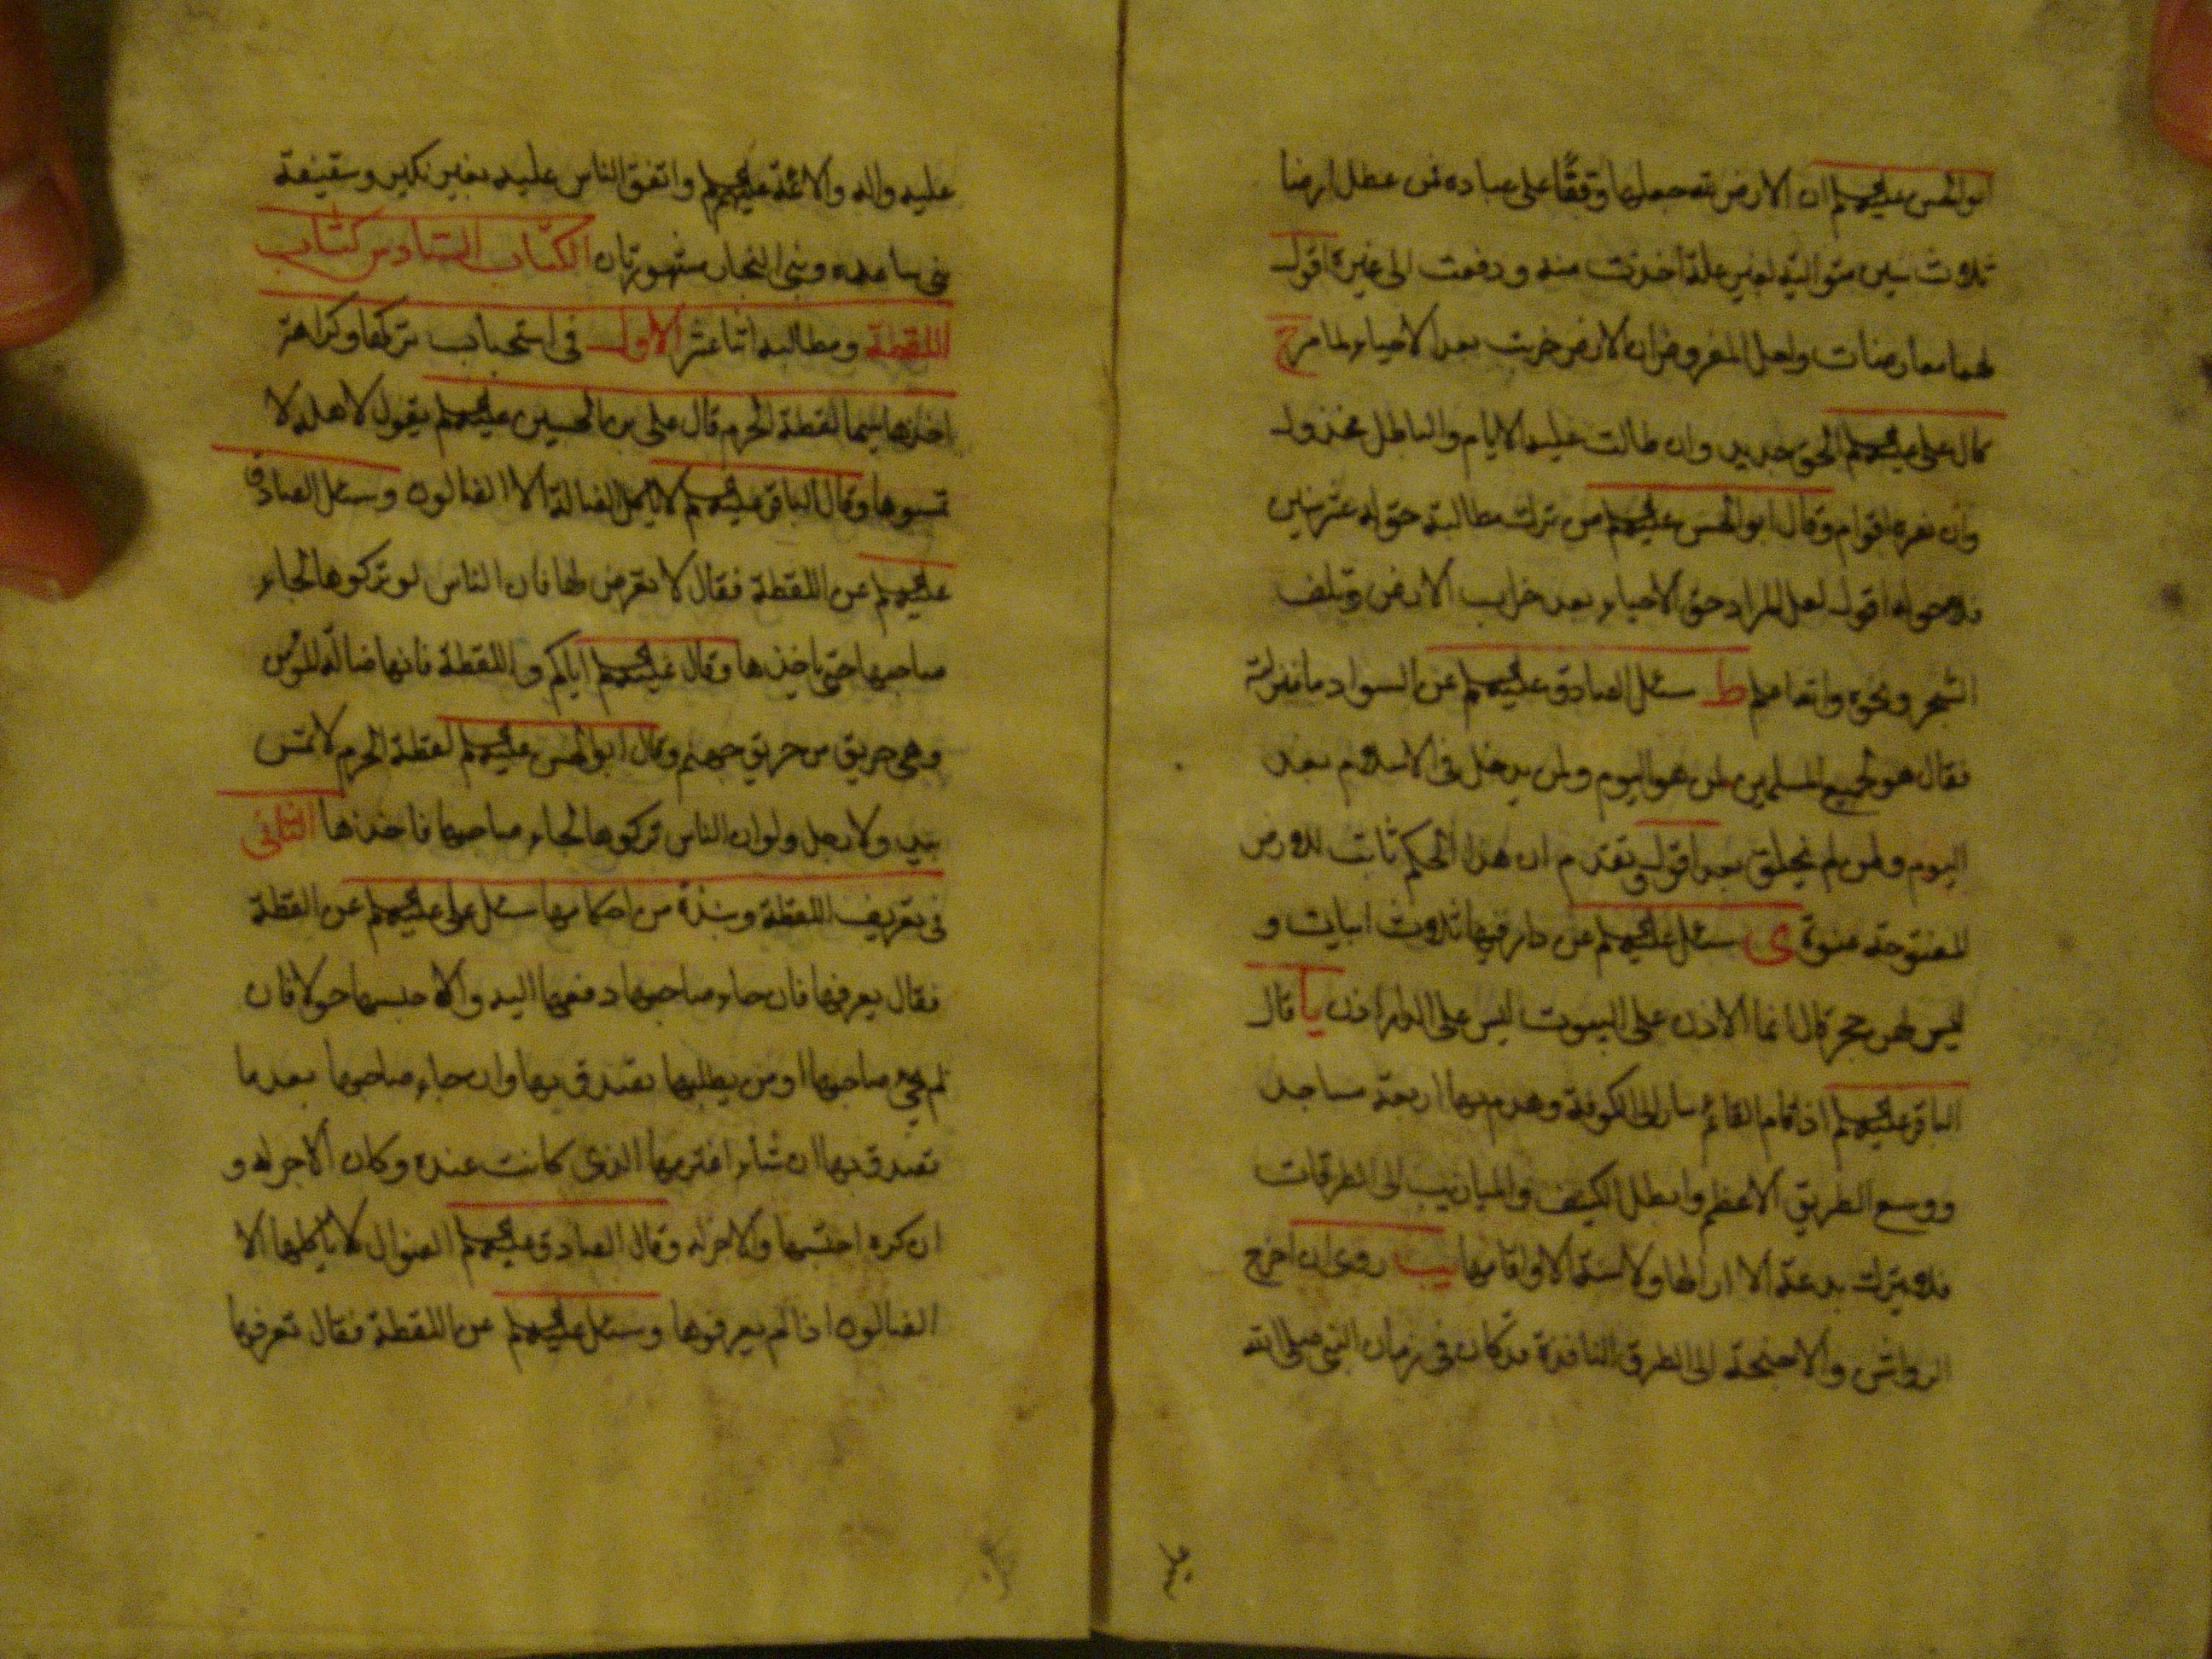 ابو الحسن عليهم ان الارض لله جعلها وقفًا على عباده فمن عطل ارضا
ثلاث سنين متوالية لغير علة اخذت منه ودفعت الى غيره اقول
لهما معارضات ولعل المفروض ان الارض خربت بعد الاحياء لما مر ح
قال على عليهم الحق جديد وان طالت عليه الايام والباطل مخذول
وان نصره اقوام وقال ابو الحسن عليهم من ترك مطالبة حق له عشر سنين
فلا حق له اقول لعل المراد حق الاحياء بعد خراب الارض وتلف
الشجر ونحوه والله اعلم ط سئل الصادق عليهم عن السواد ما منزلته
فقال هو لجميع المسلمين لمن هو اليوم ولمن يدخل فى الاسلام بعد
اليوم ولمن لم يخلق بعد اقول وتقدم ان هذا الحكم ثابت للارض
المفتوحة عنوة ى سئل عليهم عن دار فيها ثلاث ابيات و
ليس لهن حجر قال انما الاذن على البيوت ليس على الدار اذن يا قال
الباقر عليهم اذا قام القائم سار الى الكوفة وهدم بها اربعة مساجد
ووسع الطريق الاعظم وابطل الكنيف والميازيب الى الطرقات
فلا يترك بدعة الا ازالها ولا سنة الا واقامها يب روى ان اخرج
الرواشن والاجنحة الى الطرق النافذة قد كان فى زمان النبى صلى الله
عليه واله والائمة عليهم واتفق الناس عليه بغير نكير وسقيفة
بنى ساعده وبنى النجار مشهورتان الكتاب السادس كتاب
اللقطة ومطالبه اثنا عشر الاول فى استحباب تركها وكراهة
اخذها سيما لقطة الحرم قال على بن الحسين عليهم يقول لاهله لا
تمسوها وقال الباقر عليهم لا ياكل الضالة الا الضالون وسئل الصادق
عليهم عن اللقطة فقال لا تعرض لها فان الناس لو تركوها لجاء
صاحبها حتى ياخذها وقال عليهم اياكم واللقطة فانها ضالة المؤمن
وهى حريق من حريق جهنم وقال ابو الحسن عليهم لقطة الحرم لا تمس
بيد ولا رجل ولو ان الناس تركوها لجاء صاحبها فاخذها الثانى
فى تعريف اللقطة ونبذة من احكامها سئل على عليهم عن القطة
فقال يعرفها فان جاء صاحبها دفعها اليه والا حبسها حولا فان
لم يجئ صاحبها او من يطلبها تصدق بها وان جاء صاحبها بعد ما
تصدق بها ان شاء اغترمها الذى كانت عنده وكان الاجر له و
ان كره احتسبها والاجر له وقال الصادق عليهم الضوال لا ياكلها الا
الضالون اذا لم يعرفوها وسئل عليهم عن اللقطة فقال تعرفها